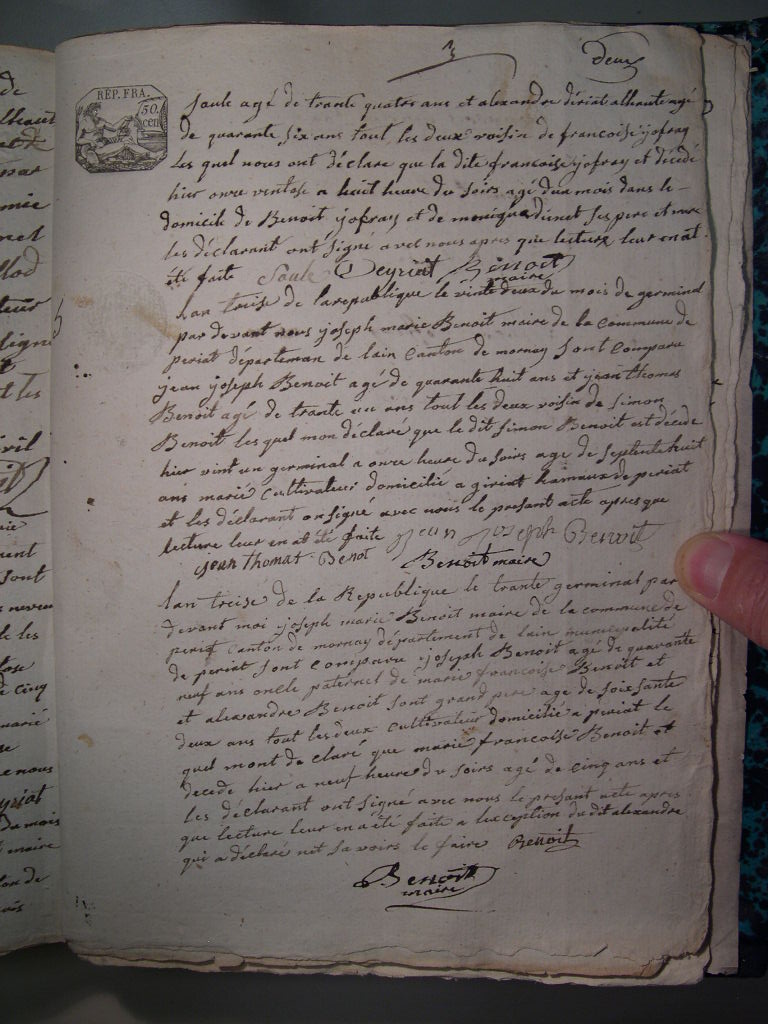 3 deux
REP. FRA.
50
cen
Soule agé de trante quatre ans et alexandre dériat alhaute agé
de quarante six ans tout les deux voisin de francoise jofray
Les quel nous ont déclare que la dite francoise jofray et décédé
hier onze ventose a huit heure du Soirs agé dun mois dans le
domicile de Benoit jofray et de monique dinet Ses pere et mere
les déclarant ont Signé avec nous apres que lecture leur en at
été faite Soule Deyriat Benoit
maire
Lan treise de la republique le vinte deux du mois de germinal
par devant nous joseph marie Benoit maire de la Commune de
periat départeman de lain Canton de mornay Sont Comparu
jean joseph Benoit agé de quarante huit ans et jean thomas
Benoit agé de trante un ans tout les deux voisin de Simon
Benoit les quel mon déclaré que le dit Simon Benoit est décédé
hier vint un germinal a onze heure du Soirs age de Septente huit
ans marié Cultivateur domicilié a giriat hamaux de periat
et les déclarant on Signé avec nous le presant acte apres que
lecture leur en at été faite jean joseph Benoit
jean thomas Benot Benoit maire
lan treise de la Republique le trante germinal par
devant moi joseph marie Benoit maire de la commune de
periat Canton de mornay département de lain municipalité
de periat Sont Comparu joseph Benoit agé de quarante
neuf ans oncle paternel de marie francoise Benoit et
et alexandre Benoit Sont grand pere age de Soissante
deux ans tout les deux Cultivateur domicilié a periat le
quel mont de claré que marie francoise Benoit et
decede hier a neuf heure du Soirs agé de Cinq ans et
Les déclarant ont Signé avec nous le presant acte apres
que lecture leur en a été faite a lexception du dit alexandre
qui a déclaré nit Savoirs le faire Benoit
Benoit
maire